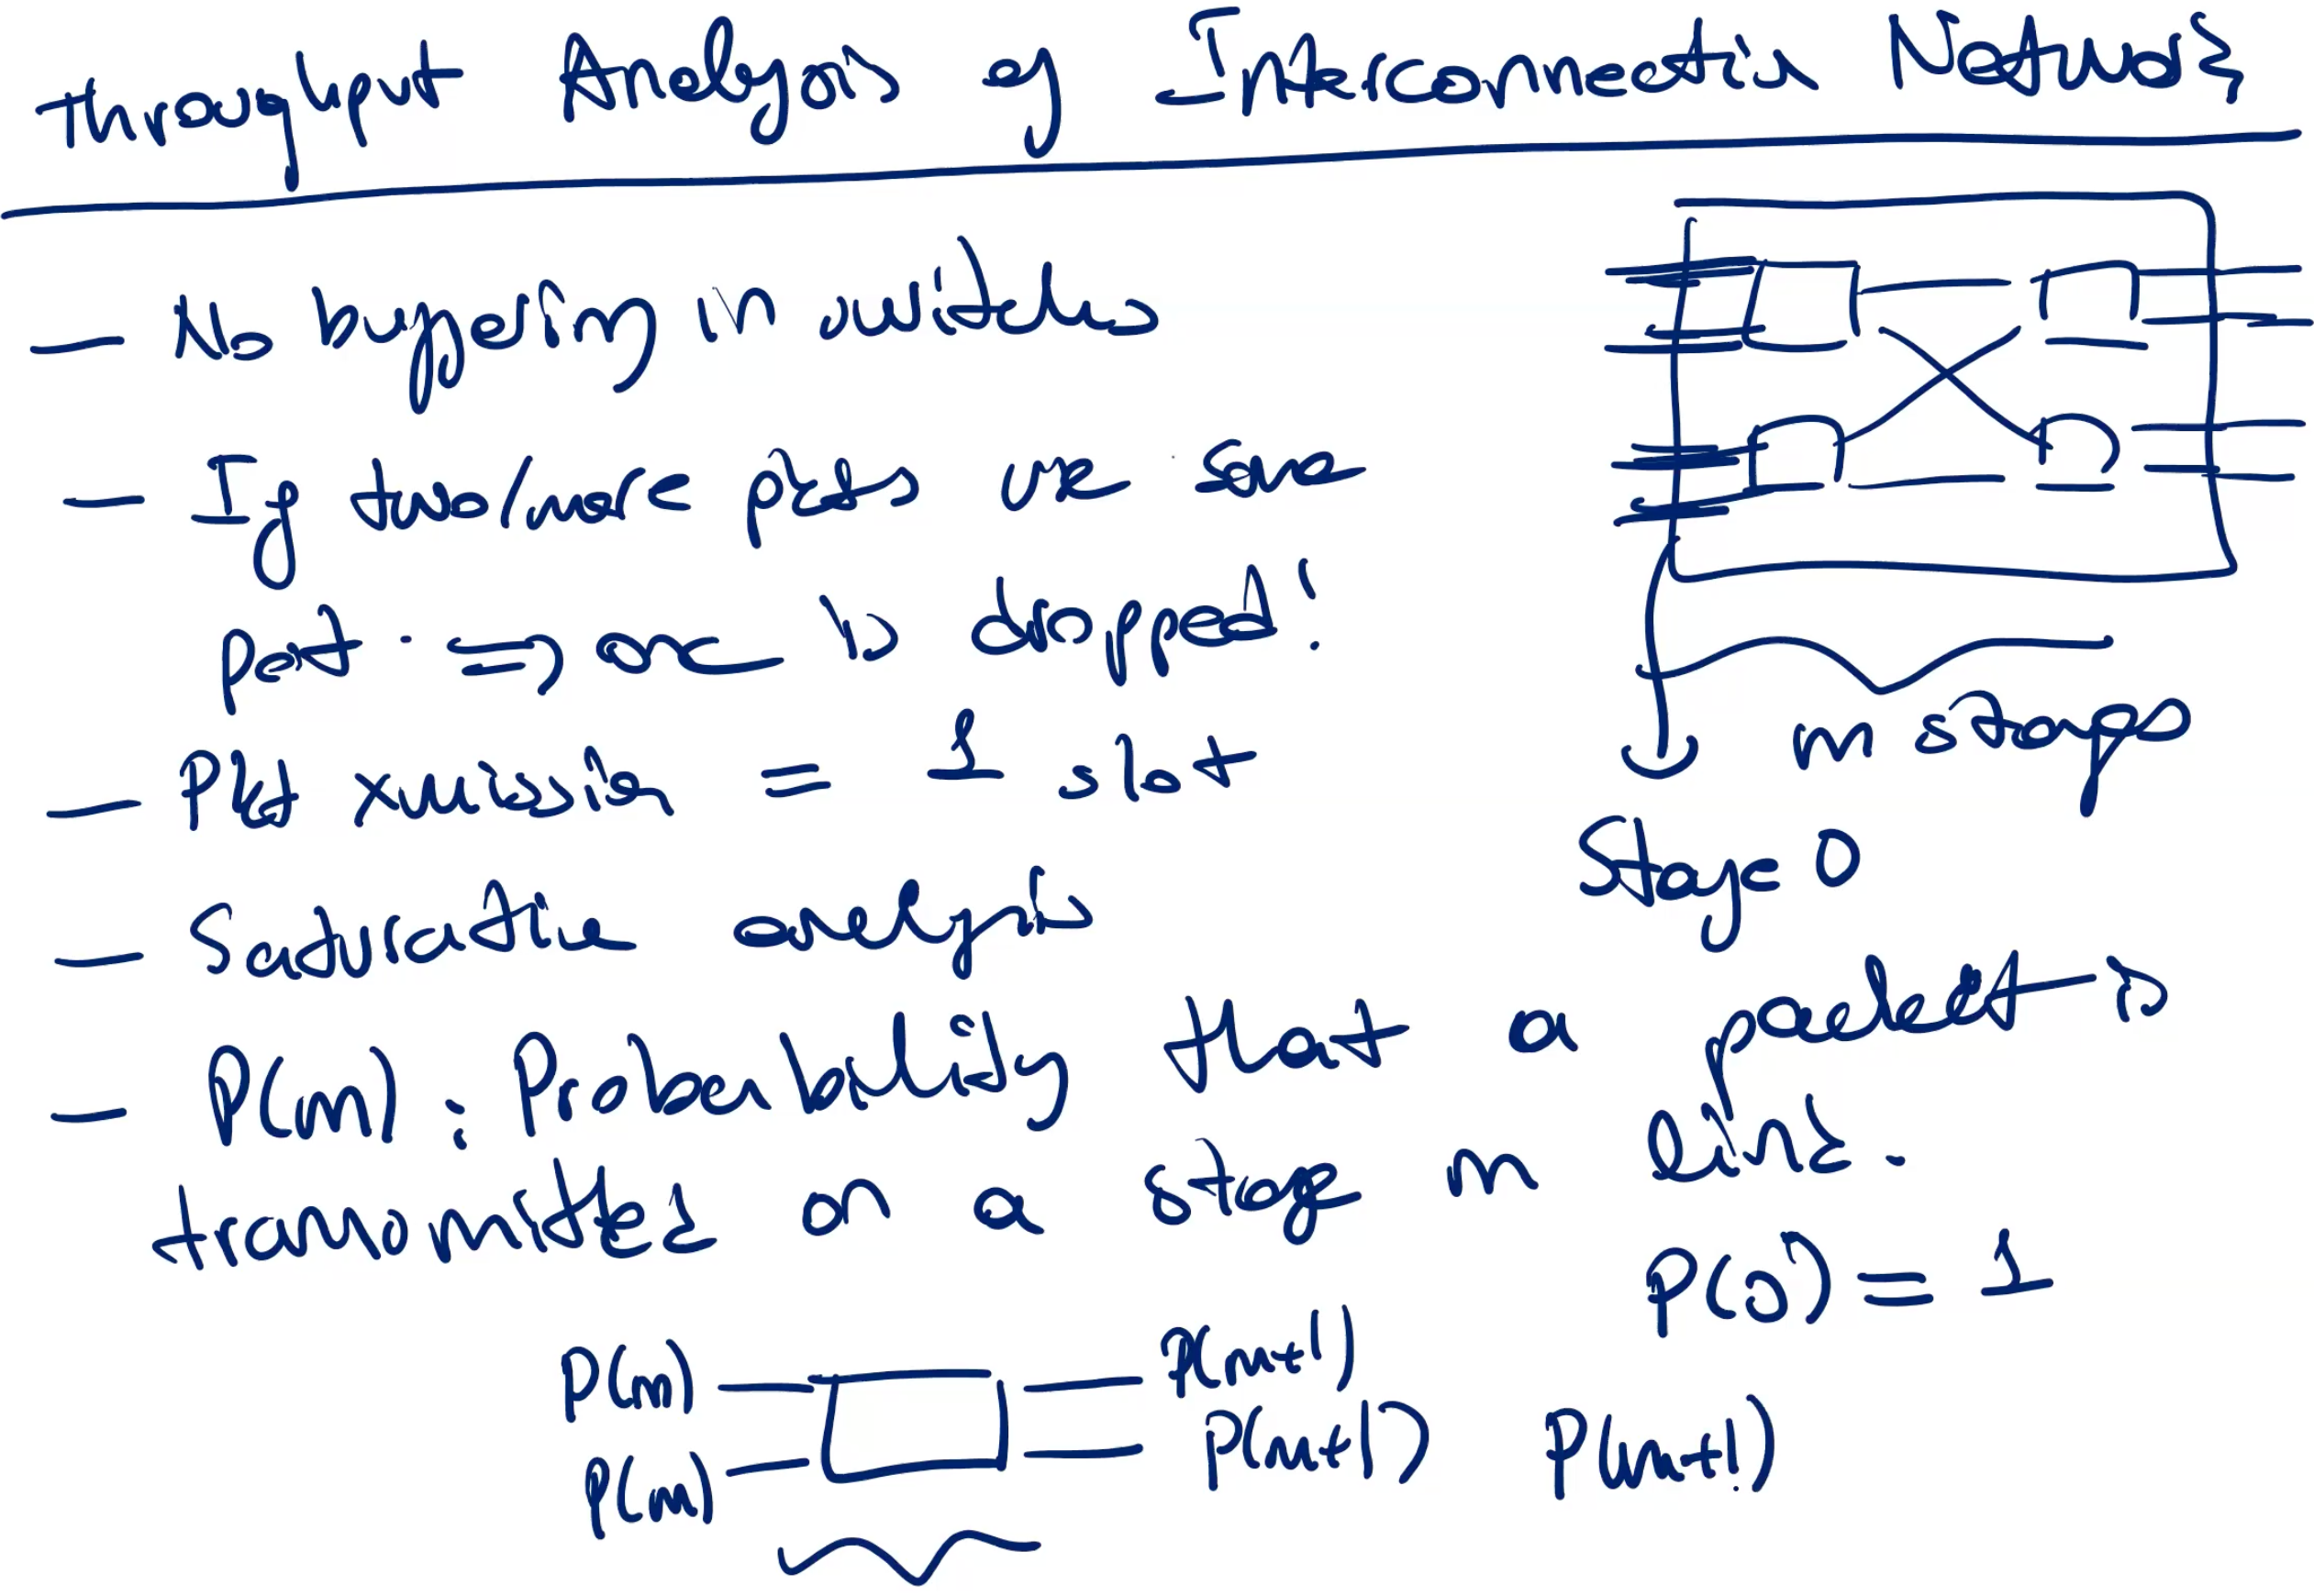 Throughput Analysis of Interconnection Networks
— No buffering in switches
— If two/more pkts use same
port ⇒ one is dropped!
— Pkt xmission = 1 slot
m stages
Stage 0
— Saturation analysis
— P(m) : Probability that a packet is
transmitted on a stage m link.
P(0) = 1
P(m) P(m+1)
P(m) P(m+1) P(m+1)